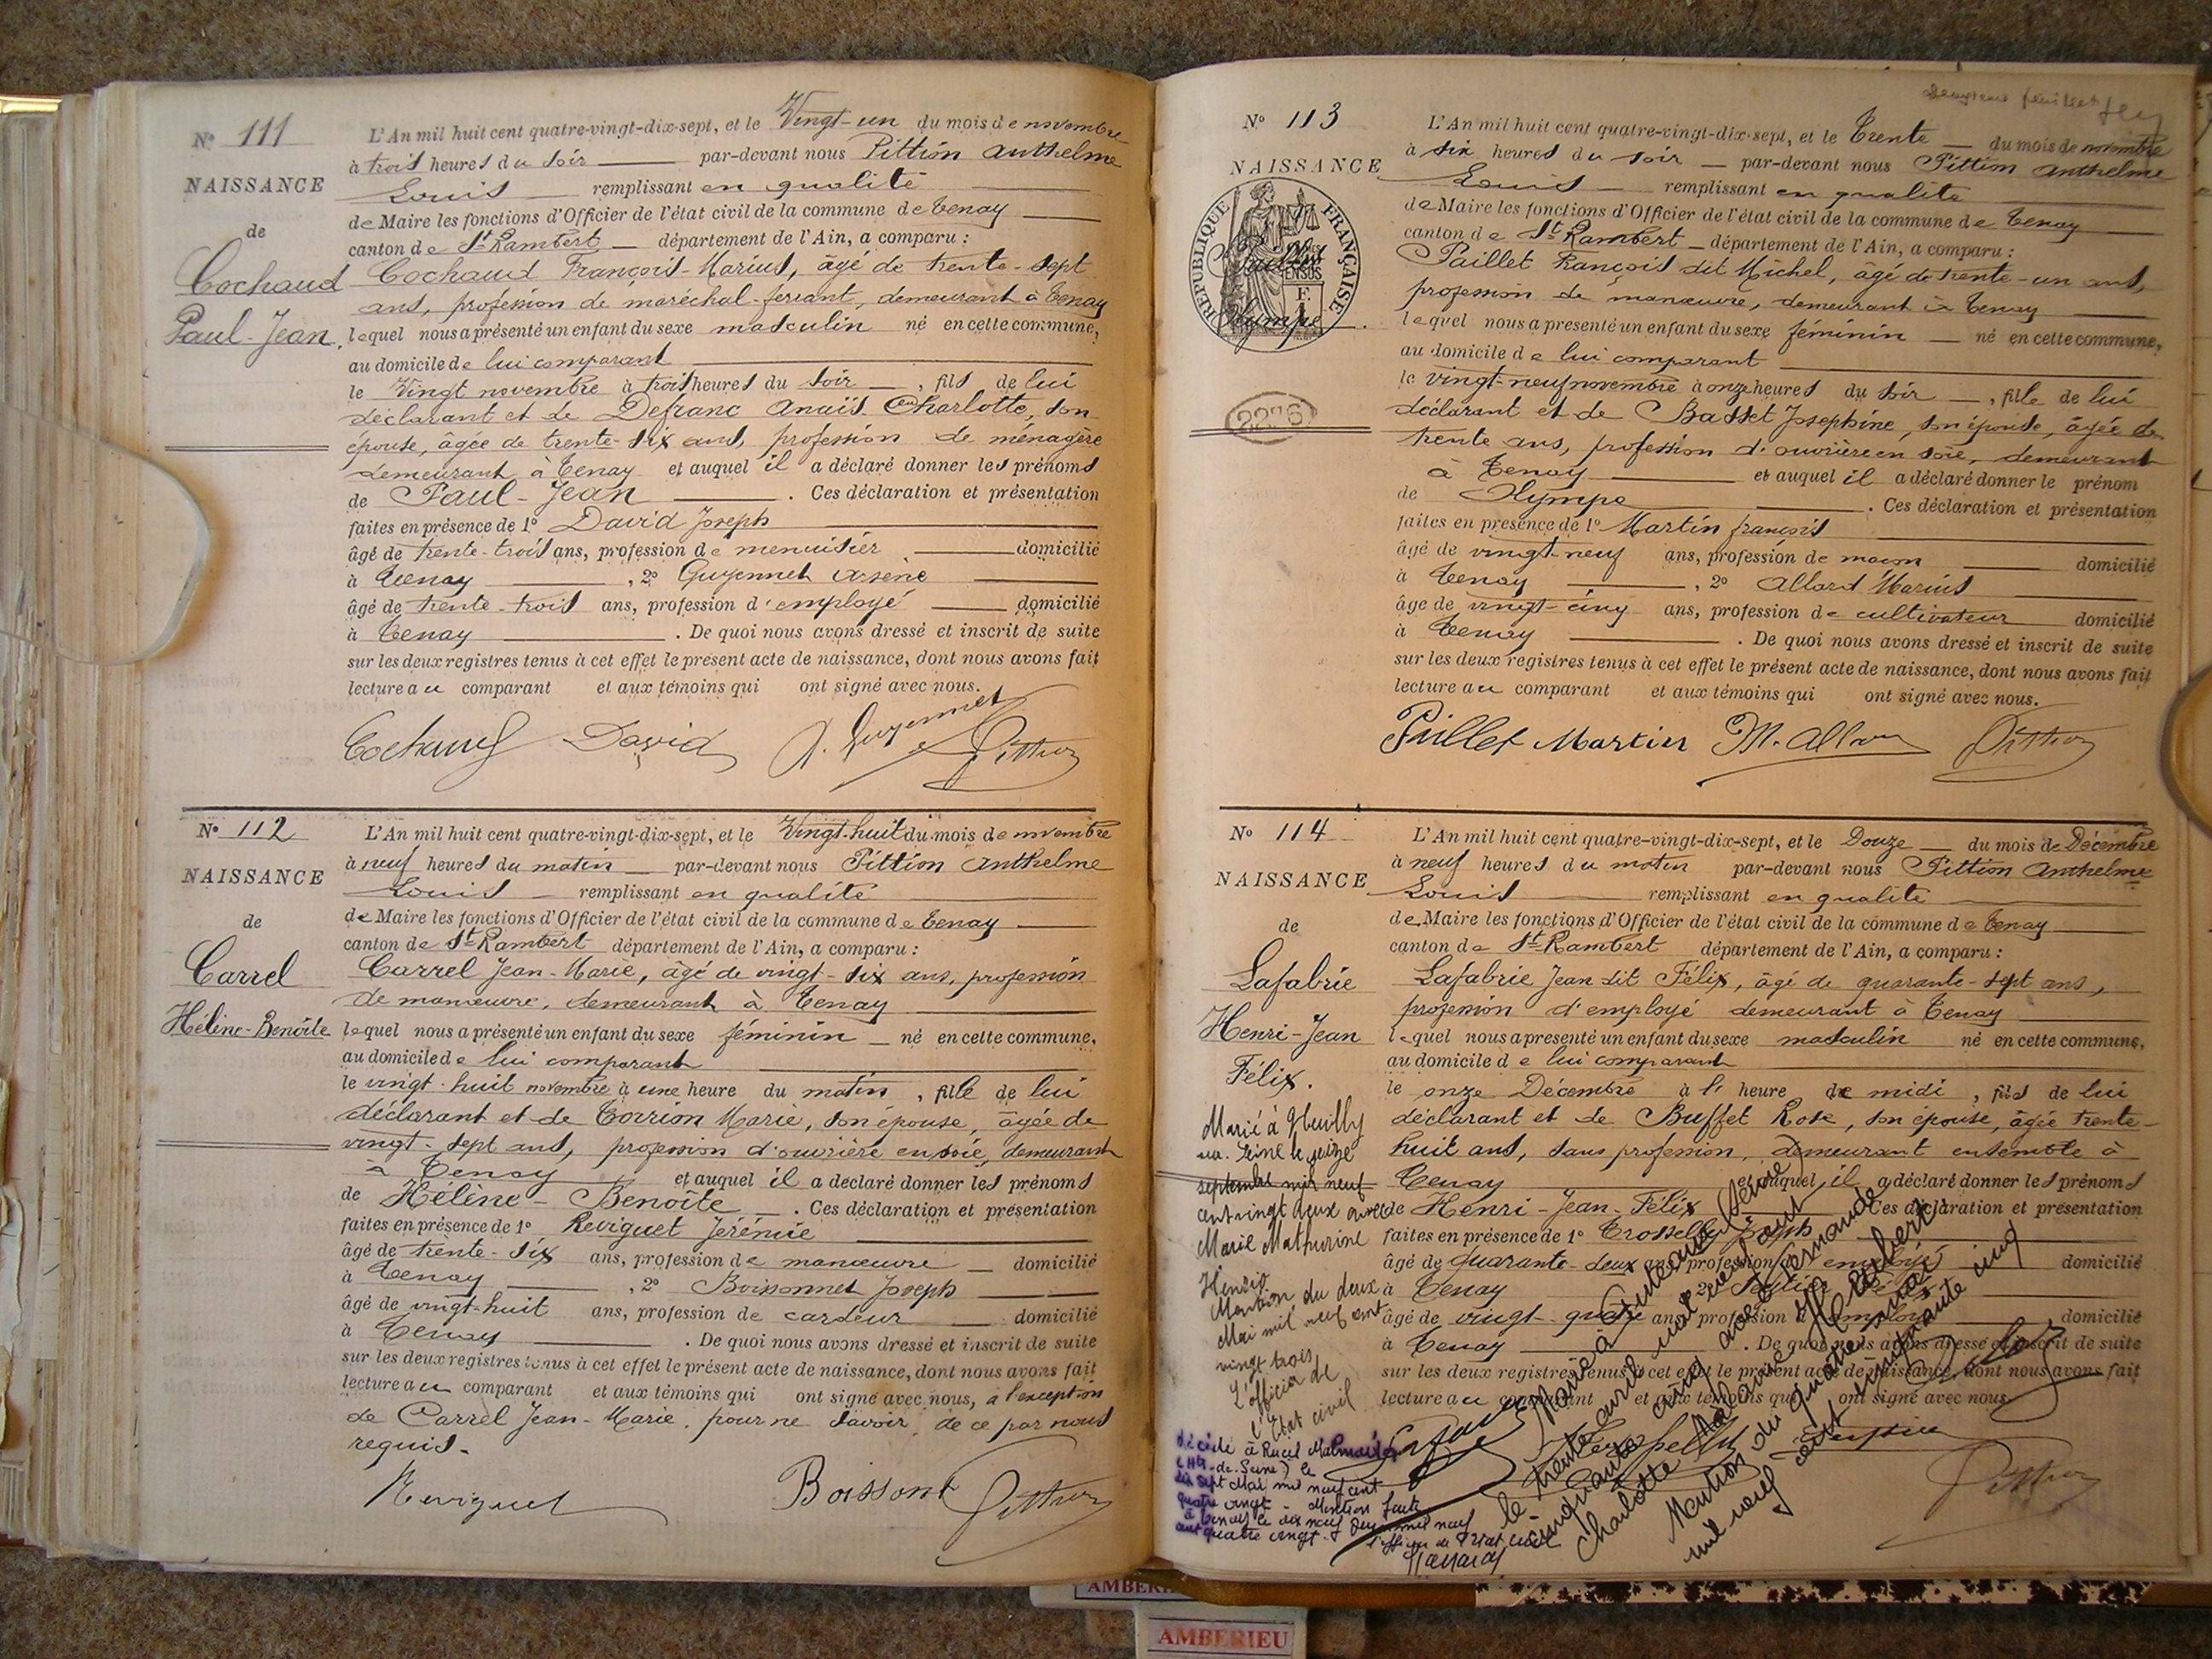 N° 111
NAISSANCE
de
Cochaud
Paul-Jean.
L'An mil huit cent quatre-vingt-dix-sept, et le Vingt-un du mois de novembre
à trois heures du soir par-devant nous Pittion Anthelme
Louis remplissant en qualité
de Maire les fonctions d'Officier de l'état civil de la commune de Tenay
canton de St Rambert département de l'Ain, a comparu :
Cochaud François-Marius, âgé de trente-sept
ans, profession de maréchal-ferrant, demeurant à Tenay
lequel nous a présenté un enfant du sexe masculin né en cette commune,
au domicile de lui comparant
le Vingt novembre à trois heures du soir, fils de lui
déclarant et de Defranc Anaïs Charlotte, son
épouse, âgée de trente-six ans, profession de ménagère
demeurant à Tenay et auquel il a déclaré donner les prénoms
de Paul-Jean. Ces déclaration et présentation
faites en présence de 1° David Joseph
âgé de trente-trois ans, profession de menuisier domicilié
à Tenay, 2° Guyennet Arsène
âgé de trente-trois ans, profession d'employé domicilié
à Tenay. De quoi nous avons dressé et inscrit de suite
sur les deux registres tenus à cet effet le présent acte de naissance, dont nous avons fait
lecture au comparant et aux témoins qui ont signé avec nous.
Cochaud David A. Guyennet Pittion
N° 112
NAISSANCE
de
Carrel
Hélène-Benoîte
L'An mil huit cent quatre-vingt-dix-sept, et le Vingt-huit du mois de novembre
à neuf heures du matin par-devant nous Pittion Anthelme
Louis remplissant en qualité
de Maire les fonctions d'Officier de l'état civil de la commune de Tenay
canton de St Rambert département de l'Ain, a comparu :
Carrel Jean-Marie, âgé de vingt-six ans, profession
de manœuvre, demeurant à Tenay
lequel nous a présenté un enfant du sexe féminin né en cette commune,
au domicile de lui comparant
le vingt-huit novembre à une heure du matin, fille de lui
déclarant et de Torrion Marie, son épouse, âgée de
vingt-sept ans, profession d'ouvrière en soie, demeurant
à Tenay et auquel il a déclaré donner les prénoms
de Hélène-Benoîte. Ces déclaration et présentation
faites en présence de 1° Reviguet Jérémie
âgé de trente-six ans, profession de manœuvre domicilié
à Tenay, 2° Boissonnet Joseph
âgé de vingt-huit ans, profession de cardeur domicilié
à Tenay. De quoi nous avons dressé et inscrit de suite
sur les deux registres tenus à cet effet le présent acte de naissance, dont nous avons fait
lecture au comparant et aux témoins qui ont signé avec nous, à l'exception
de Carrel Jean-Marie, pour ne savoir, de ce par nous
requis.
Reviguet Boissont Pittion
feuillet
N° 113
NAISSANCE
RÉPUBLIQUE FRANÇAISE
Olympe
2276
L'An mil huit cent quatre-vingt-dix-sept, et le Trente du mois de novembre
à six heures du soir par-devant nous Pittion Anthelme
Louis remplissant en qualité
de Maire les fonctions d'Officier de l'état civil de la commune de Tenay
canton de St Rambert département de l'Ain, a comparu :
Paillet François dit Michel, âgé de trente-un ans,
profession de manœuvre, demeurant à Tenay
lequel nous a présenté un enfant du sexe féminin né en cette commune,
au domicile de lui comparant
le vingt-neuf novembre à onze heures du soir, fille de lui
déclarant et de Basset Josephine, son épouse, âgée de
trente ans, profession d'ouvrière en soie, demeurant
à Tenay et auquel il a déclaré donner le prénom
de Olympe. Ces déclaration et présentation
faites en présence de 1° Martin françois
âgé de vingt-neuf ans, profession de maçon domicilié
à Tenay, 2° Allard Marius
âgé de vingt-cinq ans, profession de cultivateur domicilié
à Tenay. De quoi nous avons dressé et inscrit de suite
sur les deux registres tenus à cet effet le présent acte de naissance, dont nous avons fait
lecture au comparant et aux témoins qui ont signé avec nous.
Paillet Martin M. Allard Pittion
N° 114
NAISSANCE
de
Lafabrie
Henri-Jean
Félix.
Marié à Neuilly
sur Seine le seize
septembre mil neuf
cent vingt deux avec
Marie Mathurine
Mention du deux
Mai mil neuf cent
vingt trois
L'officier de
l'Etat civil
décédé à Rueil Malmaison
(Hts-de-Seine) le
dix sept Mai mil neuf cent
quatre vingt - Mention faite
à Tenay le dix neuf mil neuf
cent quatre vingt.
l'officier de l'Etat civil
L'An mil huit cent quatre-vingt-dix-sept, et le Douze du mois de Décembre
à neuf heures du matin par-devant nous Pittion Anthelme
Louis remplissant en qualité
de Maire les fonctions d'Officier de l'état civil de la commune de Tenay
canton de St Rambert département de l'Ain, a comparu :
Lafabrie Jean dit Félix, âgé de quarante-sept ans,
profession d'employé demeurant à Tenay
lequel nous a présenté un enfant du sexe masculin né en cette commune,
au domicile de lui comparant
le onze Décembre à l' heure de midi, fils de lui
déclarant et de Buffet Rose, son épouse, âgée trente-
huit ans, sans profession, demeurant ensemble à
Tenay et auquel il a déclaré donner les prénoms
de Henri-Jean-Félix. Ces déclaration et présentation
faites en présence de 1° Joseph
âgé de quarante-deux ans, profession d'employé domicilié
à Tenay, 2°
âgé de vingt-quatre ans, profession d'employé domicilié
à Tenay. De quoi nous avons dressé et inscrit de suite
sur les deux registres tenus à cet effet le présent acte de naissance, dont nous avons fait
lecture au comparant et aux témoins qui ont signé avec nous.
Pittion
Marié à (Seine)
le trente avril mil neuf cent
cinquante cinq avec
Charlotte Madeleine
Mention du quatre mai
mil neuf cent cinquante cinq
AMBERIEU